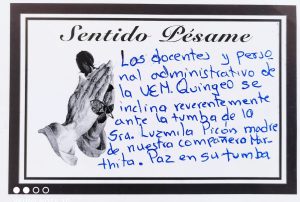 Sentido Pésame
Los docentes y perso
nal administrativo de
la UEM. Quingeo se
inclina reverentemente
ante la tumba de la
Sra. Luzmila Picón madre
de, nuestra compañera Mar
thita. Paz en su tumba